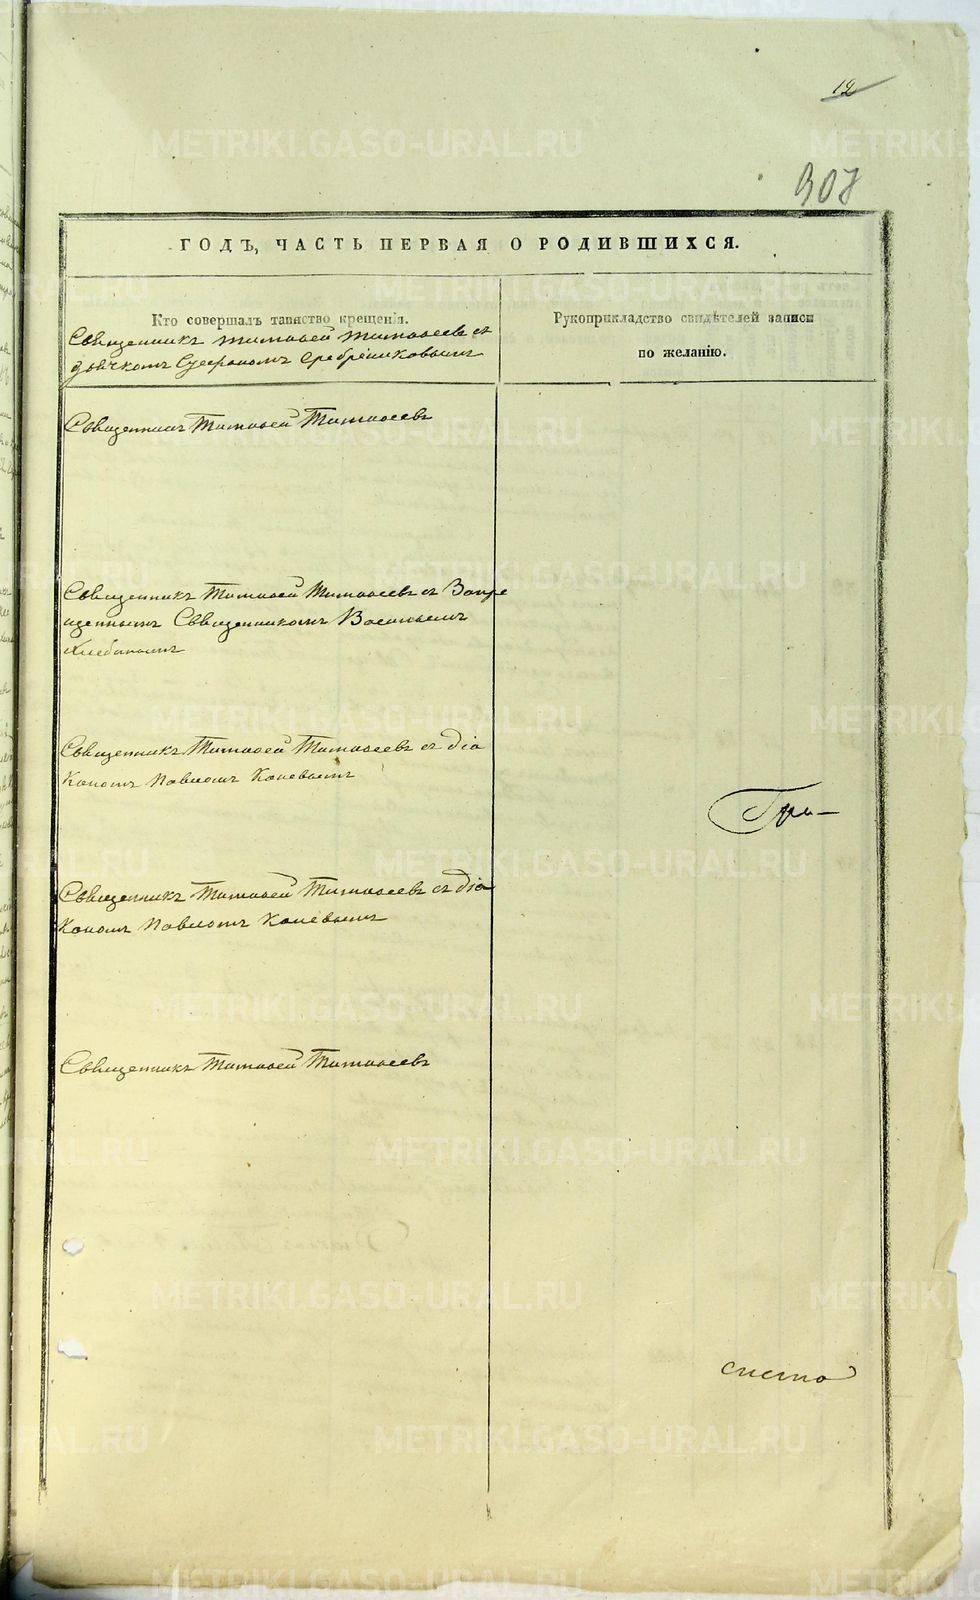 12
307
ГОДЪ, ЧАСТЬ ПЕРВАЯ О РОДИВШИХСЯ.
Кто совершалъ таинство крещенія.
Рукоприкладство свидѣтелей записи
по желанію.
Священникъ Тимофей Тимофеевъ съ
дьячкомъ Сребрениковымъ
Священникъ Тимофей Тимофеевъ
Священникъ Тимофей Тимофеевъ съ Запре
щеннымъ Священникомъ Васильемъ
Хлебинымъ
Священникъ Тимофей Тимофеевъ съ діа
кономъ Павломъ Каневымъ
Священникъ Тимофей Тимофеевъ съ діа
кономъ Павломъ Каневымъ
Священникъ Тимофей Тимофеевъ
METRIKI.GASO-URAL.RU